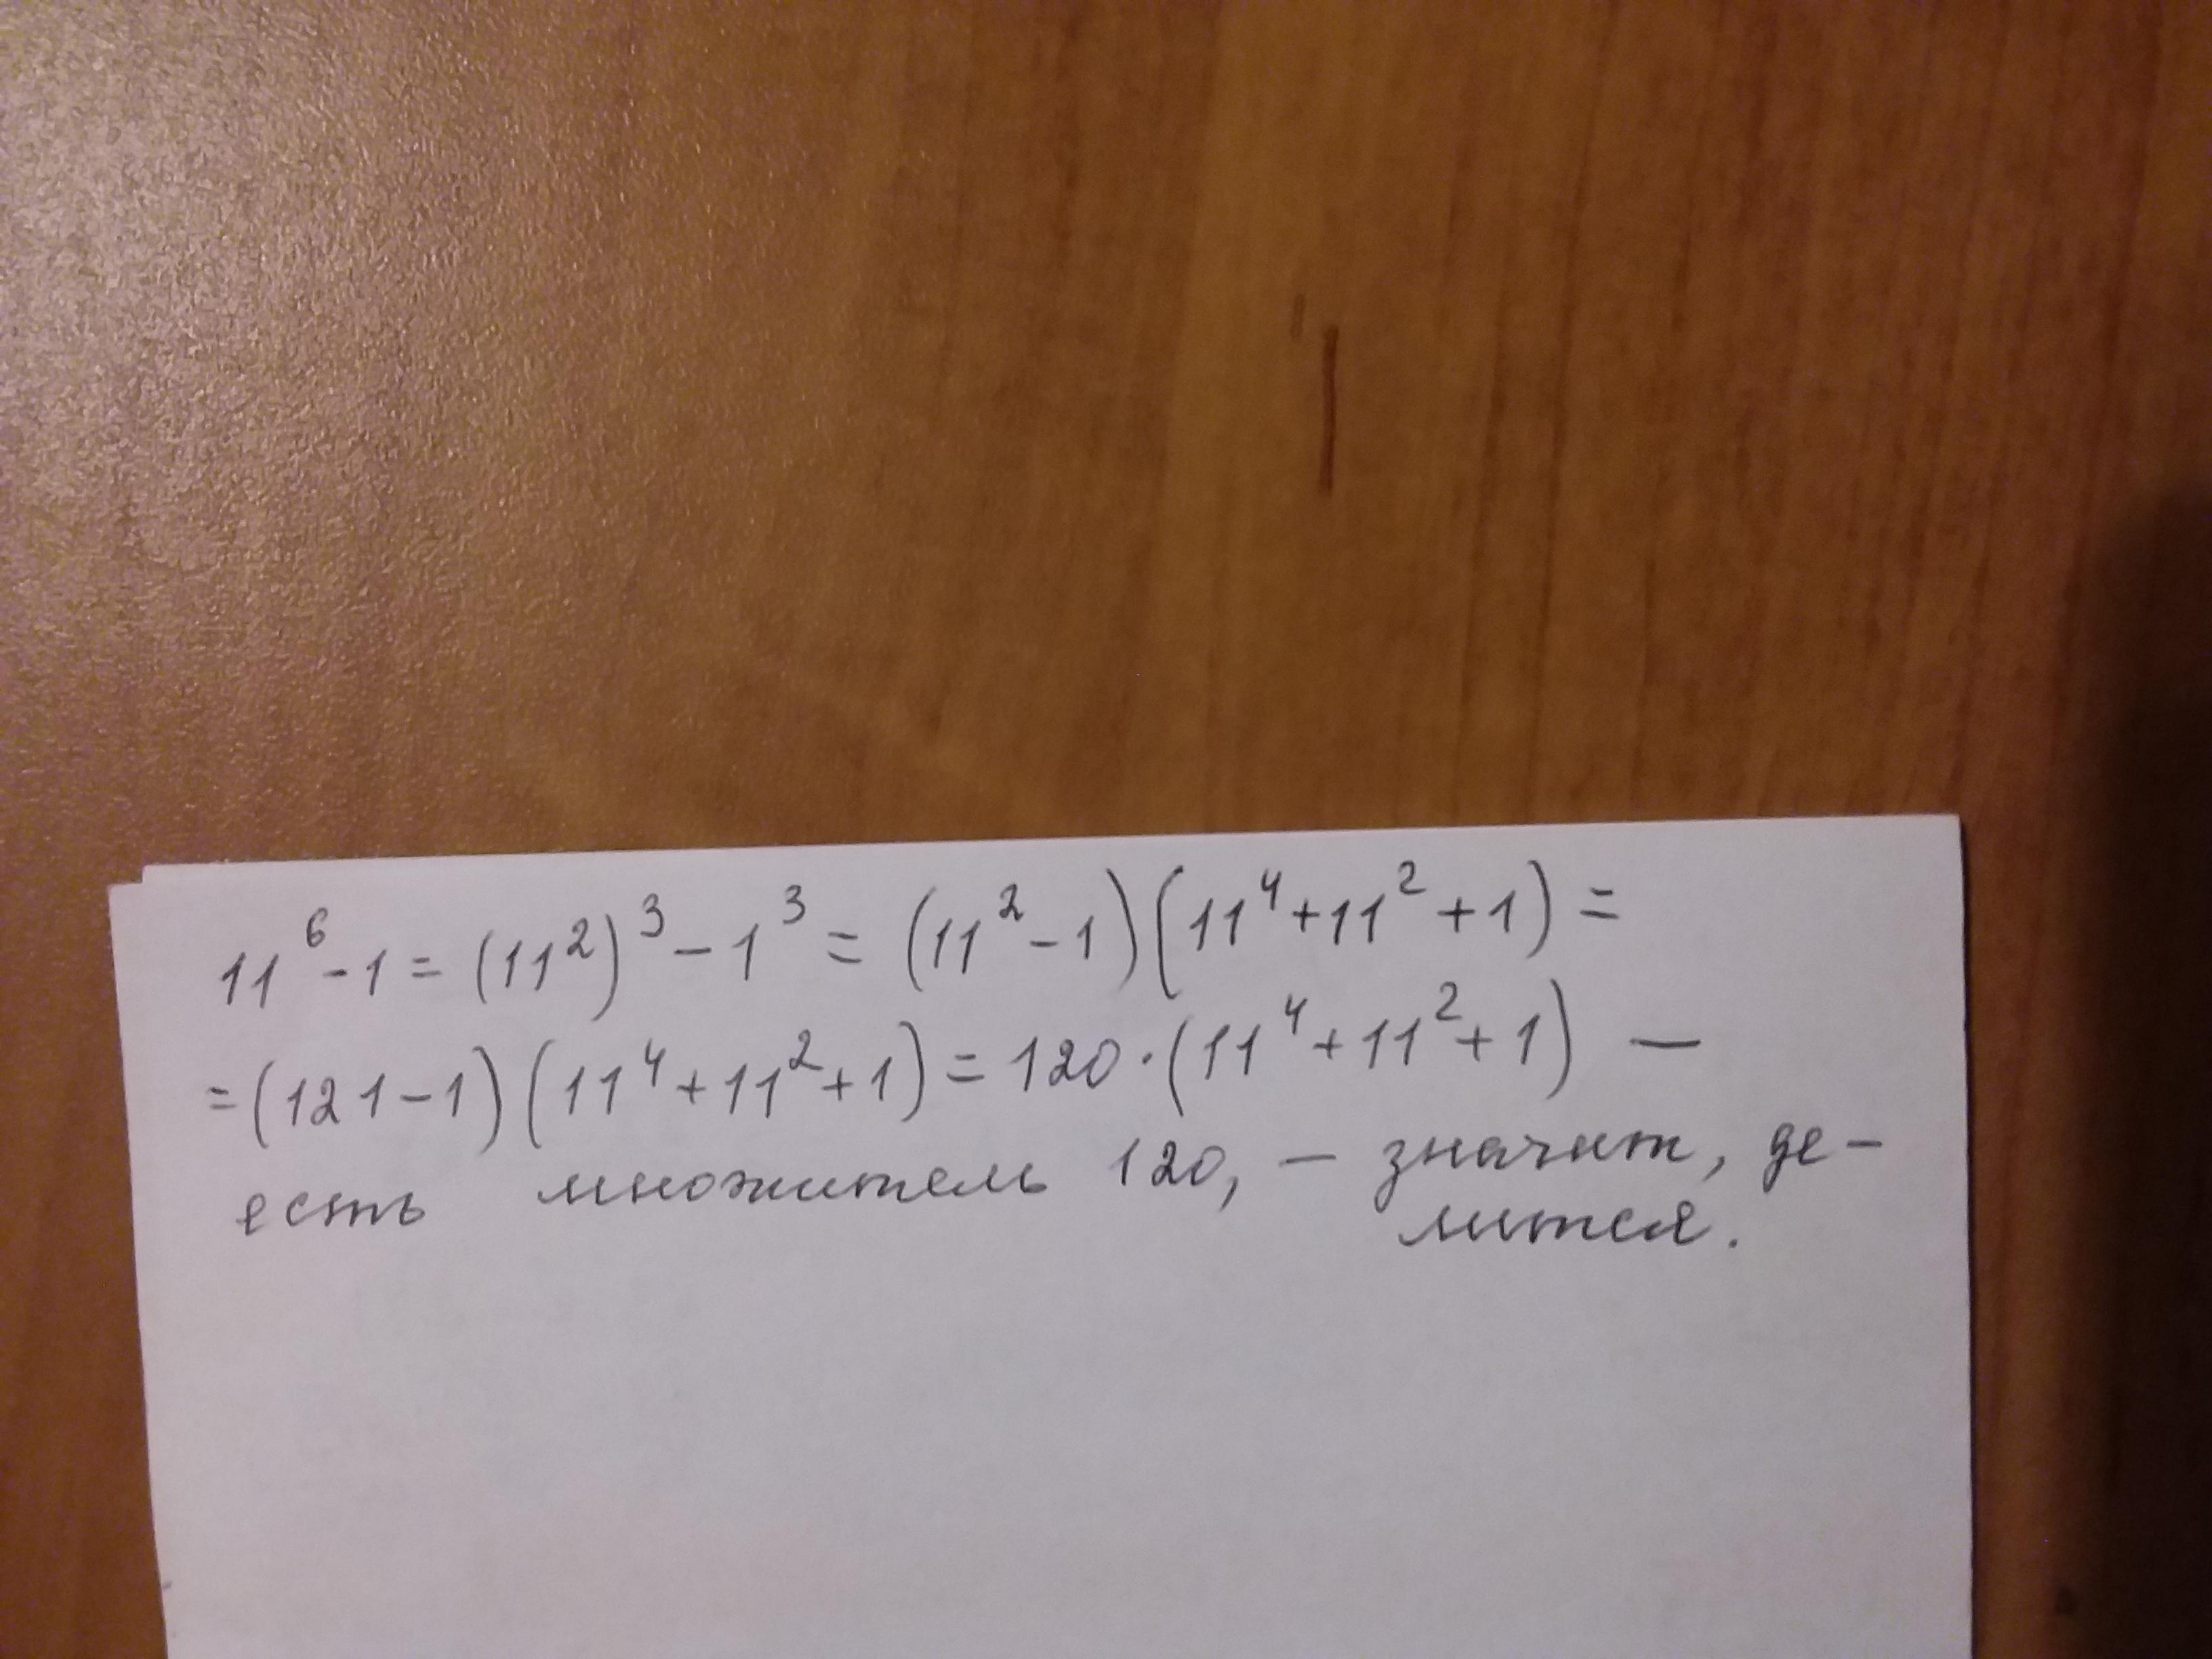 11⁶-1=(11²)³-1³=(11²-1)(11⁴+11²+1)=
=(121-1)(11⁴+11²+1)=120·(11⁴+11²+1) —
есть множитель 120, – значит, де-
лится.